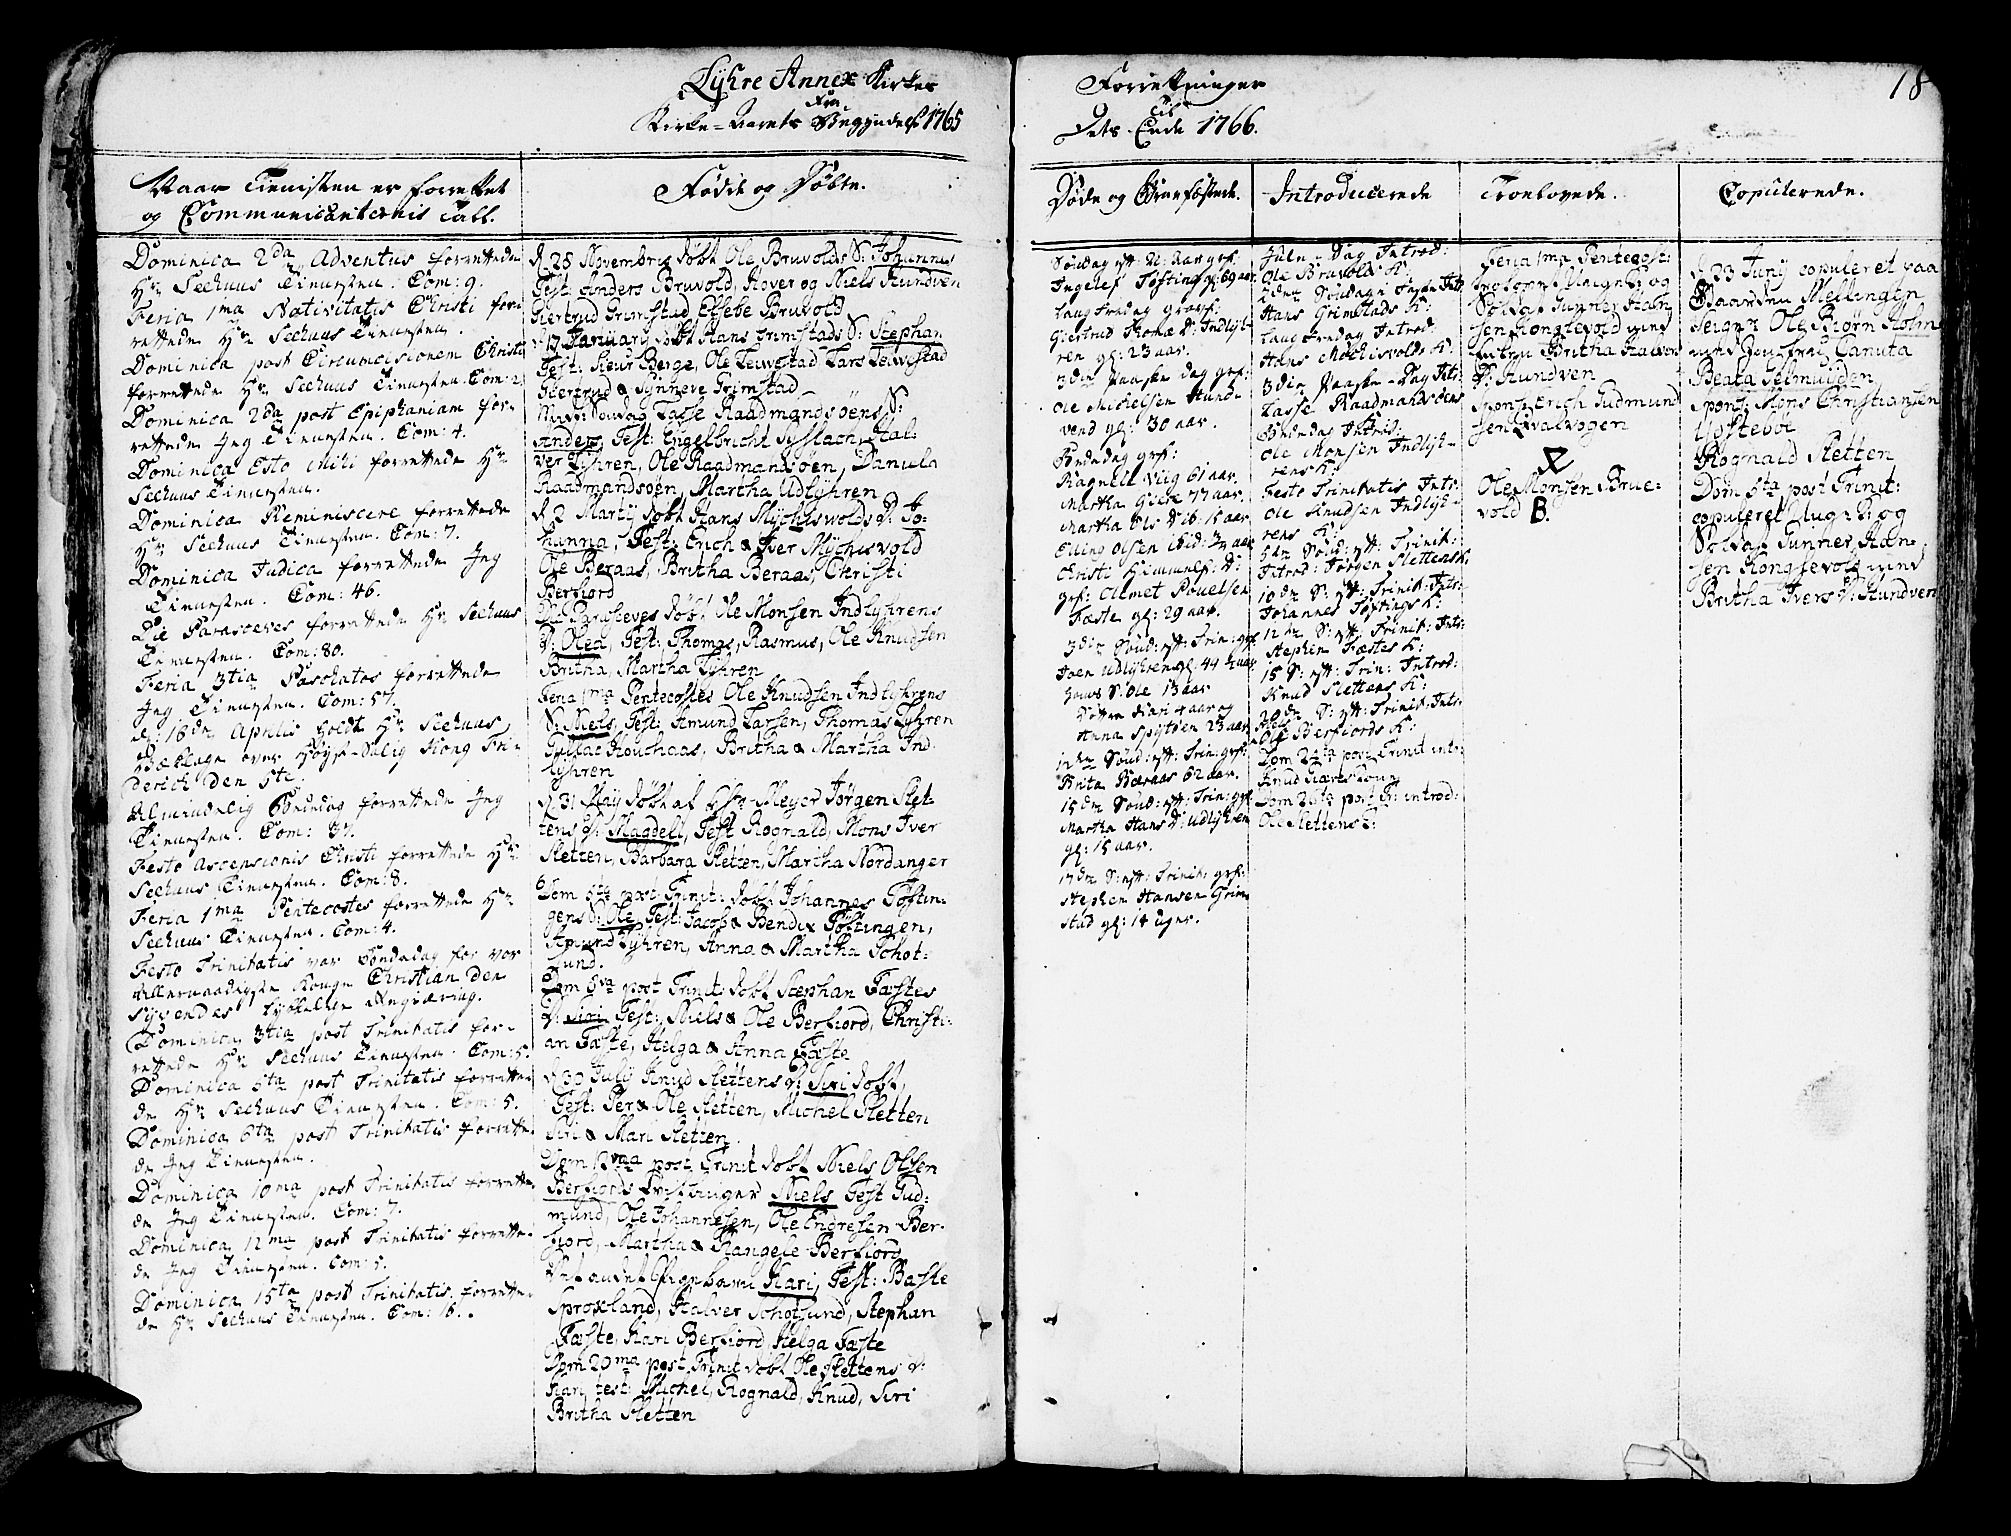 Lyhre Annex Kirkes
Fra
Kirke-Aarets Begyndelse 1765
Forretninger
til
Dets Ende 1766.
18
Naar Tienisten er forrettet
og Communicanternis Tall.
Dominica 2da Adventus forrettede
Hr Seehuus Tienesten. Com: 9.
Feria 1ma Nativitatis Christi for-
rettede Hr Seehuus Tienesten.
Dominica post Circumcisionem Christi
forrettede Hr Seehuus Tienesten. Com: 2
Dominica 2da post Epiphaniam for-
rettede Jeg Tienesten. Com: 4.
Dominica Esto mihi forrettede Hr
Seehuus Tienesten.
Dominica Reminiscere forrettede
Hr Seehuus Tienesten. Com: 7.
Dominica Judica forrettede Jeg
Tienesten. Com: 46.
Die Parasceves forrettede Hr Seehuus
Tienesten. Com: 80.
Feria 3tia Paschatos forrettede
Jeg Tienesten. Com: 57.
d: 18de Aprilis holdt Hr Seehuus
over Høyst-Salig Kong Fri-
derich den 5te.
Almindelig Bededag forrettede Jeg
Tienesten. Com: 37.
Festo Ascensionis Christi forrettede Hr
Seehuus Tienesten. Com: 8.
Feria 1ma Pentecostes forrettede Hr
Seehuus Tienesten. Com: 4.
Festo Trinitatis var Søndag for vor
Allernaadigste Konge Christian den
Syvendes lykkelige Regiæring.
Dominica 3tia post Trinitatis for-
rettede Hr Seehuus Tienesten. Com: 5.
Dominica 5ta post Trinitatis forrette-
de Hr Seehuus Tienesten. Com: 5.
Dominica 6ta post Trinitatis forrette-
de Jeg Tienesten.
Dominica 10ma post Trinitatis forrette-
de Jeg Tienesten. Com: 7.
Dominica 12ma post Trinitatis forrette-
de Jeg Tienesten. Com: 5.
Dominica 15ta post Trinitatis forrette-
de Hr Seehuus Tienesten. Com: 16.
Fødde og Døbte.
d 28 Novembris døbt Ole Bruvolds S: Johannes
Test: Anders Bruvold, Hover og Niels Hundven
Giertrud Grimstad Elsebe Bruvold
d 17 Januarij døbt Hans Grimstads S: Stephan
Test: Sieur Berge, Ole Teiwstad Lars Teiwstad
Giertrud & Synneve Grimstad
Søndag Lasse Raadmandsöens S:
Anders, Test: Engelbricht Hal-
ver Lyhren, Ole Raadmandsøen, Danula
Raadmandsøen, Martha Udlyhren
d 2 Martij døbt Hans Mychisvolds D: Jo-
hanna, Test: Erich & Iver Mychisvold
Ole Beraas, Britha Beraas, Christi
Berfiord
Die Parasceves døbt Ole Monsen Indlyhrens
D: Olea, Test: Thomas, Rasmus, Ole Knudsen
Britha, Martha Lyhren
Feria 1ma Pentecostes Ole Knudsen Indlyhrens
S: Niels, Test: Amund Larsen, Thomas Lyhren
Britha & Martha Ind-
lyhren
d 31 Maij døbt af Hr Meyer Jörgen Slet-
tens D: Magdeli, Test Rognald, Mons Iver
Sletten, Barbara Sletten, Martha Nordanger
Dom 5ta post Trinit: døbt Johannes Töftin-
gens S: Ole, Test: Jacob & Bendix Töftingen,
Amund Lyhren, Anna & Martha Schot-
sund.
Dom 8va post Trinit: døbt Stephan Fæstes
D: Siri Test: Niels & Ole Berfiord, Christi-
an Fæste, Helga & Anna Fæste
d 30 Julij Knud Slettens D: Siri døbt,
Test: Per & Ole Sletten, Michel Sletten
Siri & Mari Sletten
Dom post Trinit døbt Niels Olsen
Berfiords Niels Test Gud-
mund, Ole Johannesen, Ole Endresen Ber-
fiord, Martha & Rangele Berfiord
Kari, Test: Baste
Sproxland, Halver Schotsund, Stephan
Fæste, Kari Berfiord, Helga Fæste
Dom 20ma post Trinit døbt Ole Slettens D:
Kari, test: Michel, Rognald, Knud, Siri
Britha Sletten
Døde og Graufæstede.
Ingelef Töfting gl: 69 aar.
Langfredag grafs:
Giertrud Thomæ D: Indlyh-
ren gl: 23 aar.
3die Paaske dag grf:
Ole Michelsen Hund-
vend gl: 30 aar.
Bededag grf:
Ragnele Viig 61 aar.
Martha Giere 77 aar.
Martha Ols D ib: 15 aar
Elling Olsen ibid:
Christi Himmelf: D:
grf: Olmet Povelsen
Fæste gl: 29 aar.
3die Sønd: eft: Trin: grf
Joen Udlyhren gl: 44 ½ aar
hans S: Ole 13 aar
Datter Kari 4 aar og
Anna 23 aar
12te Sønd: eft: Trin: grf:
Brita Beraas 62 aar.
15de Sønd: eft: Trin: grf
Martha Hans D: Udlyhren
gl: 15 aar.
17de S: eft: Trinit: grf:
Stephen Hansen Grim-
stad gl: 14 uger.
Introducerede
Jule-Dag Introd:
Ole Bruvolds K:
2den Søndag i Faste Intr
Hans Grimstads K:
Langfredag Introd:
Hans Mochisvolds K:
3die Paaske-Dag Intr:
Lasse Raadmandsøens
Bededag Introd:
Ole Monsen Indlyh-
rens K:
Festo Trinitatis Intr:
Ole Knudsen Indlyh-
rens K:
5te Sønd: eft: Trinit:
Introd: Jørgen Slettens K
10de S: eft: Trinit: Intr:
Johannes Töftings K:
12te S: eft: Trinit: Intr:
Stephen Fæstes K:
15 S: eft: Trin: Introd:
Knud Slettens K:
20de S: eft: Trinit: Intr.
Niels
Ole Berfiords K:
Dom 22da post Trinit intr:
Knud
Dom post T: introd:
Ole Slettens K:
Troelovede.
Feria 1ma Pentecost:
og
Soldat Gunner Han-
sen Kongsevold med
Britha Halvor
D: Hundven
Spons: Erich Gudmund
sen Qvalvogen
Ole Monsen Brue-
vold B.
Copulerede.
d 23 Junij copuleret paa
Gaarden Mellingen
Seignr Ole Biørn Holm
med Jomfrue Canuta
Beata Selmuijden
Spons: Mons Christiansen
Rognald Sletten
Dom 5ta post Trinit:
copuleret og
Soldat Gunner Han-
sen Kongsevold med
Britha Ivers D: Hundven